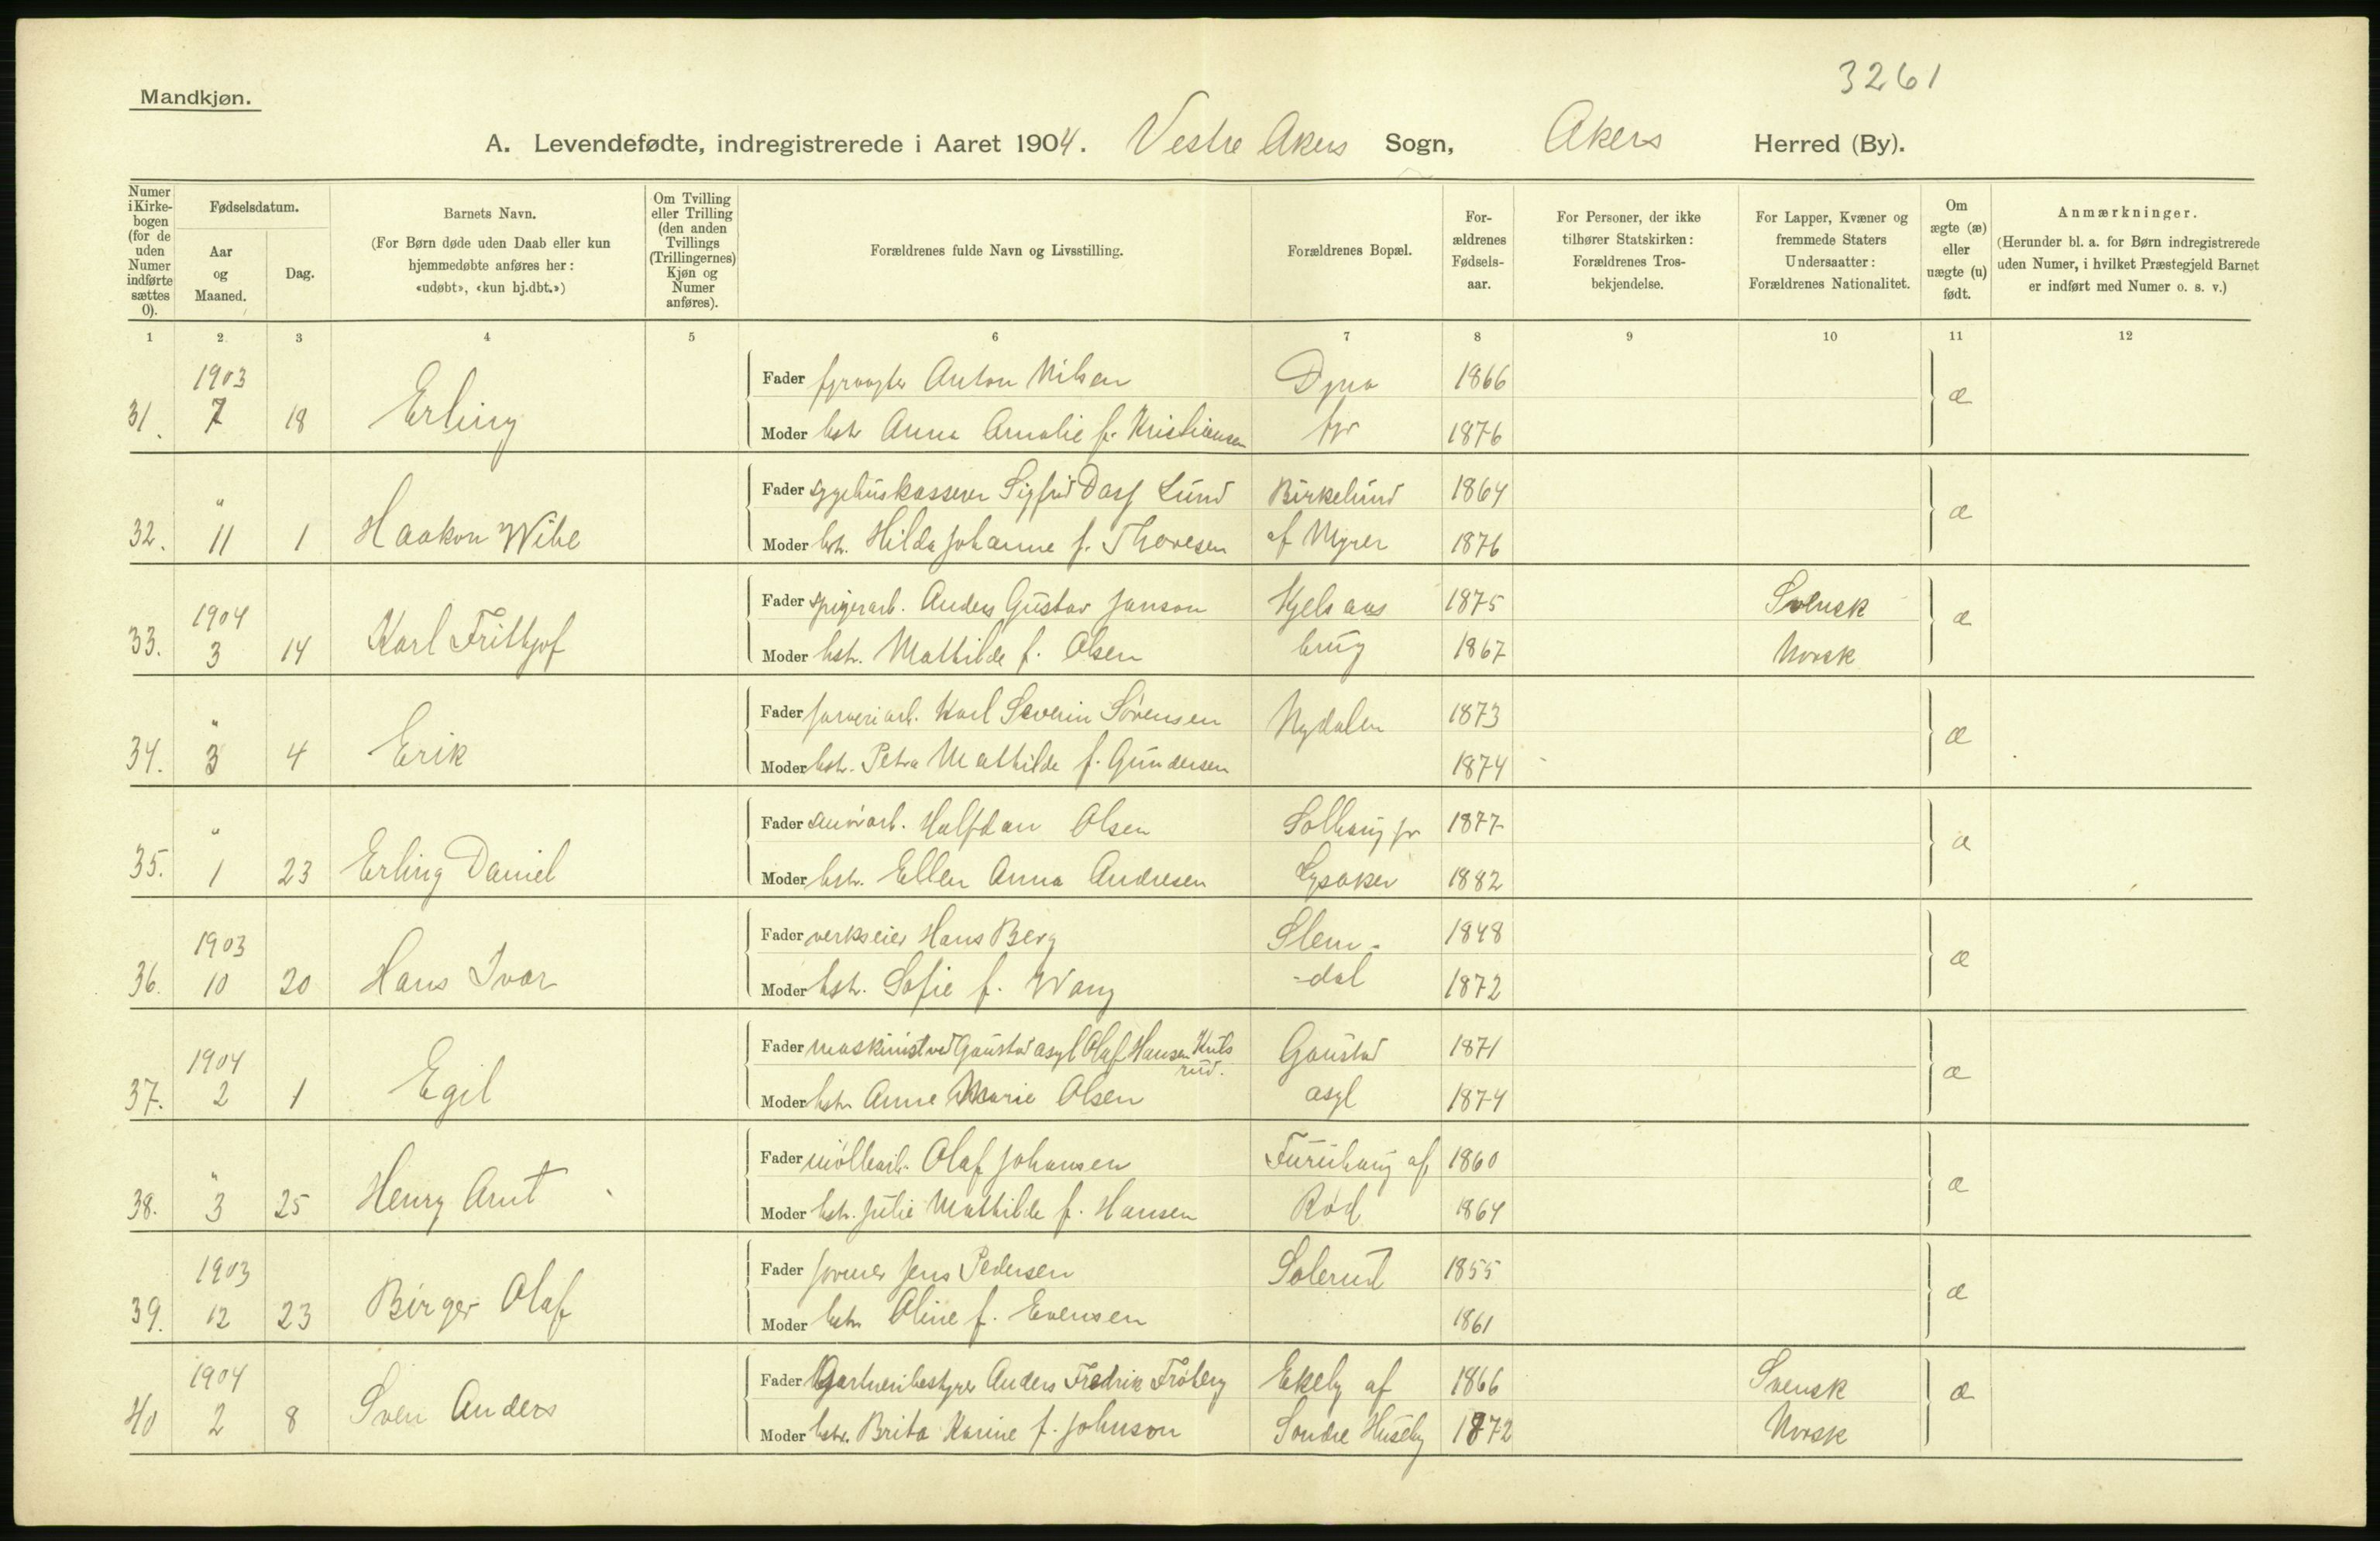 3261
Mandkjøn.
A. Levendefødte, indregistrerede i Aaret 1904. Vestre Akers Sogn, Akers Herred (By).
Numer i Kirkebogen (for de uden Numer indførte sættes 0).
Fødselsdatum.
Aar og Maaned.
Dag.
Barnets Navn.
(For Børn døde uden Daab eller kun hjemmedøbte anføres her: «udøbt», «kun hj.dbt.»)
Om Tvilling eller Trilling (den anden Tvillings (Trillingernes) Kjøn og Numer anføres).
Forældrenes fulde Navn og Livsstilling.
Forældrenes Bopæl.
Forældrenes Fødselsaar.
For Personer, der ikke tilhører Statskirken: Forældrenes Trosbekjendelse.
For Lapper, Kvæner og fremmede Staters Undersaatter: Forældrenes Nationalitet.
Om ægte (æ) eller uægte (u) født.
Anmærkninger.
(Herunder bl. a. for Børn indregistrerede uden Numer, i hvilket Præstegjeld Barnet er indført med Numer o. s. v.)
1 2 3 4 5 6 7 8 9 10 11 12
1903
Fader fyrvogter Anton Nilsen Dyna 1866
31. 7 18 Erling æ
Moder hstr Anna Amalie f. Kristiansen fyr 1876
"
Fader sygehuskasserer Sigfrid Lund Birkelund 1864
32. 11 1 Haakon Wibe æ
Moder hstr. Hilda Johanne f. Thoresen af Myrer 1876
1904
Fader spigerarb. Anders Gustav Janson Kjelsaas 1875 Svensk
33. 3 14 Karl Frithjof æ
Moder hstr. Mathilde f. Olsen brug 1867 Norsk
"
Fader farveriarb. Karl Severin Sörensen Nydalen 1873
34. 3 4 Erik æ
Moder hstr. Petra Mathilde f. Gundersen 1874
"
Fader Halfdan Olsen Solhaug pr 1877
35. 1 23 Erling Daniel æ
Moder hstr. Ellen Anna Andresen Lysaker 1882
1903
Fader verkseier Hans Berg Slem- 1848
36. 10 20 Hans Ivar æ
Moder hstr. Sofie f. Wang -dal 1872
1904
Fader maskinist ved Gaustad asyl Olaf Hansen Knuts Gaustad 1871
rud.
37. 2 1 Egil æ
Moder hstr Anne Marie Olsen asyl 1874
"
Fader möllearb. Olaf Johansen Furuhaug af 1860
38. 3 25 Henry Arnt æ
Moder hstr. Julie Mathilde f. Hansen Röd 1864
1903
Fader former Jens Pedersen Solerud 1855
39. 12 23 Birger Olaf æ
Moder hstr Oline f. Evensen 1861
1904
Fader Gartneribestyrer Anders Fredrik Fröberg Ekely af 1866 Svensk
40 2 8 Sven Anders æ
Moder hstr. Brita Karine f. Johnson Söndre Huseby 1872 Norsk